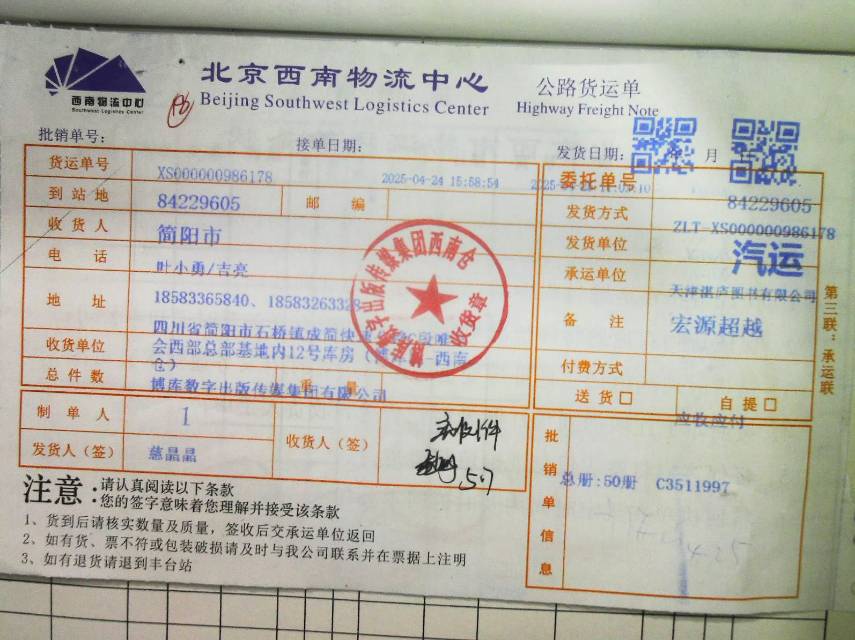 西南物流中心
Southwest Logistics Center
北京西南物流中心
Beijing Southwest Logistics Center
公路货运单
Highway Freight Note
批销单号：
接单日期：
发货日期： 年 月 日
货运单号 XS000000986178 2025-04-24 15:58:54
委托单号 84229605
到站地 84229605 邮编
发货方式 ZLT-XS000000986178
收货人 简阳市
发货单位 汽运
电话 叶小勇/吉亮
承运单位 天津湛庐图书有限公司
地址 18583365840、18583263328
四川省简阳市石桥镇成简快速
会西部总部基地内12号库房
西南
仓）
备注 宏源超越
收货单位 博库数字出版传媒集团有限公司
付费方式
总件数 重量
送货□ 自提□
应收应付
制单人 1
收货人（签）
实收1件
5.7
发货人（签） 慈晶晶
批销单信息
总册:50册 C3511997
博库数字出版传媒集团西南仓
收货章
第三联：承运联
注意：
请认真阅读以下条款
您的签字意味着您理解并接受该条款
1、货到后请核实数量及质量，签收后交承运单位返回
2、如有货、票不符或包装破损请及时与我公司联系并在票据上注明
3、如有退货请退到丰台站